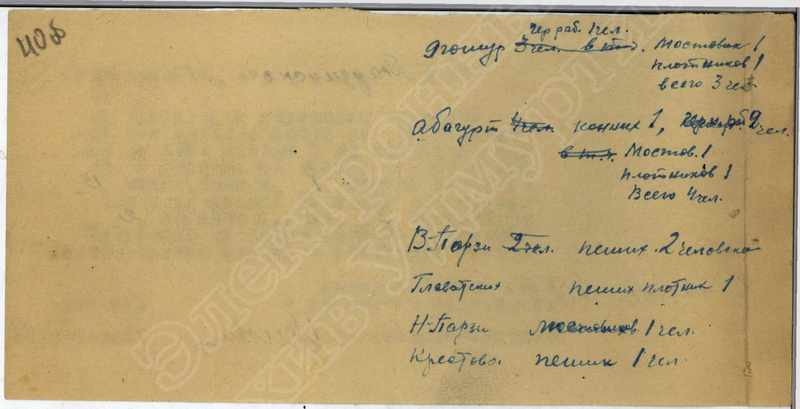 40б
чер раб. 1 чел.
Ягошур 3 чел. в т.ч. Мостовик 1
плотников 1
всего 3 чел.
Абагурт 4 чел. конных 1, 2 чел.
в т.ч. Мостов. 1
плотников 1
Всего 4 чел.
В-Парзи 2 чел. пеших 2 человека
Главатских пеших плотник 1
Н-Парзи 1 чел.
Крестова пеших 1 чел.
Электронный
архив Удмуртии